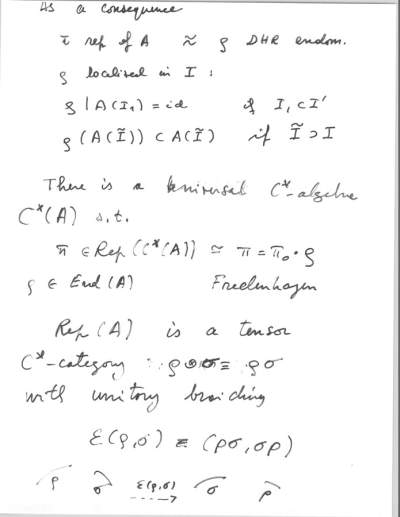 As a consequence
π rep of A ≈ ρ DHR endom.
ρ localized in I :
ρ | A(I₁) = id if I₁ ⊂ I'
ρ (A(Ĩ)) ⊂ A(Ĩ) if Ĩ ⊃ I
There is a universal C*-algebra
C*(A) s.t.
π ∈ Rep (C*(A)) ≃ π = π₀ · ρ
ρ ∈ End (A) Fredenhagen
Rep (A) is a tensor
C*-category : ρ⊗σ ≡ ρσ
with unitary braiding
ε(ρ,σ) ∈ (ρσ, σρ)
ρ σ ε(ρ,σ) ----> σ ρ